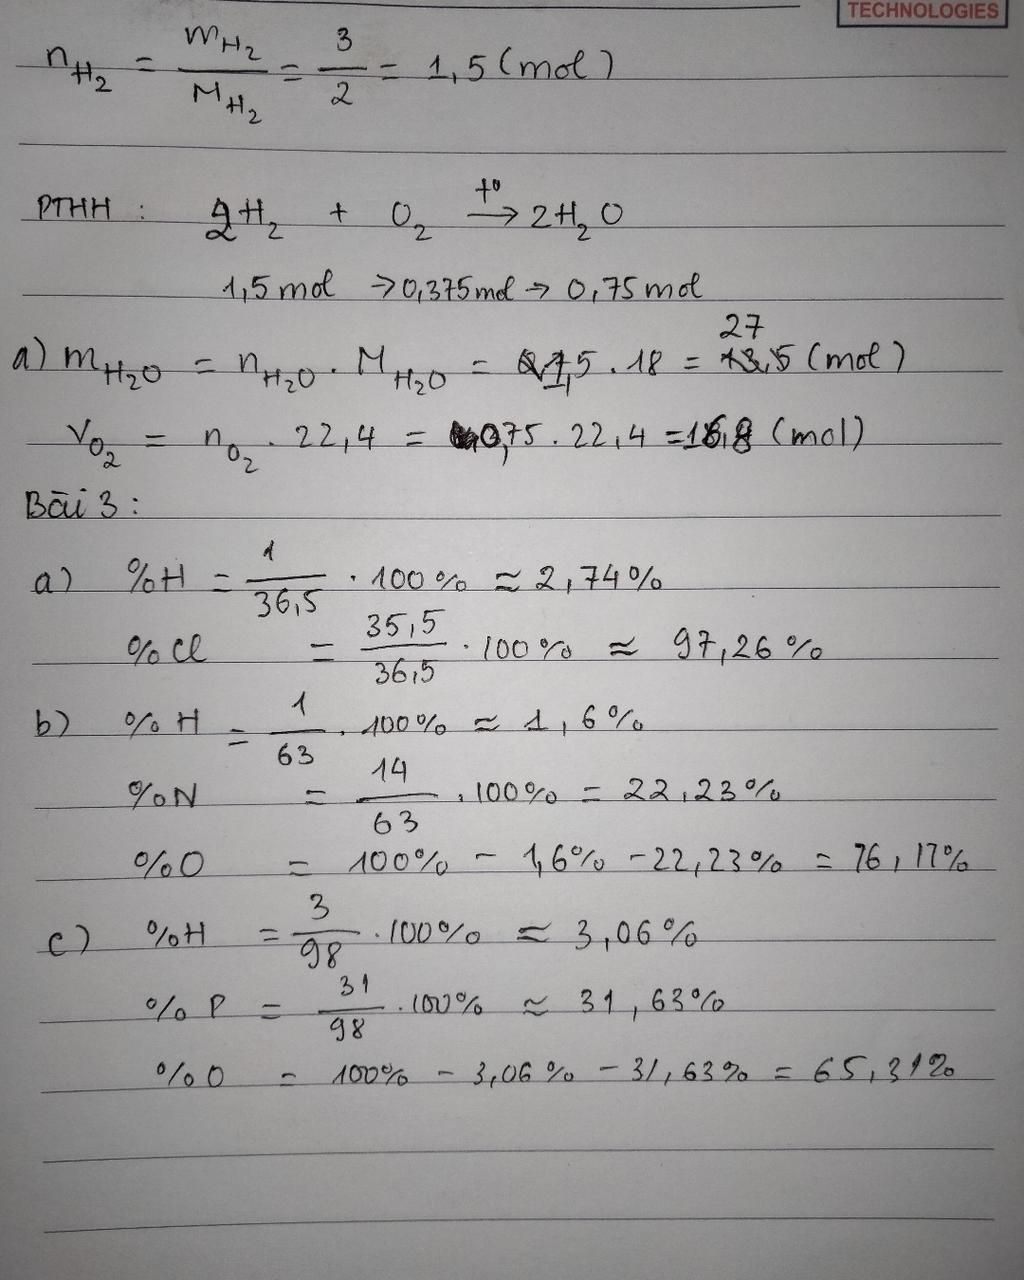 TECHNOLOGIES
n_H₂ = m_H₂ / M_H₂ = 3/2 = 1,5 (mol)
PTHH : 2H₂ + O₂ →(t°) 2H₂O
1,5 mol → 0,375 mol → 0,75 mol
27
a) m_H₂O = n_H₂O . M_H₂O = 1,5 . 18 = (mol)
V_O₂ = n_O₂ . 22,4 = 0,75 . 22,4 = 16,8 (mol)
Bài 3 :
a) %H = 1/36,5 . 100% ≈ 2,74%
%Cl = 35,5/36,5 . 100% ≈ 97,26%
b) %H = 1/63 . 100% ≈ 1,6%
%N = 14/63 . 100% = 22,23%
%O = 100% - 1,6% - 22,23% = 76,17%
c) %H = 3/98 . 100% ≈ 3,06%
%P = 31/98 . 100% ≈ 31,63%
%O = 100% - 3,06% - 31,63% = 65,31%